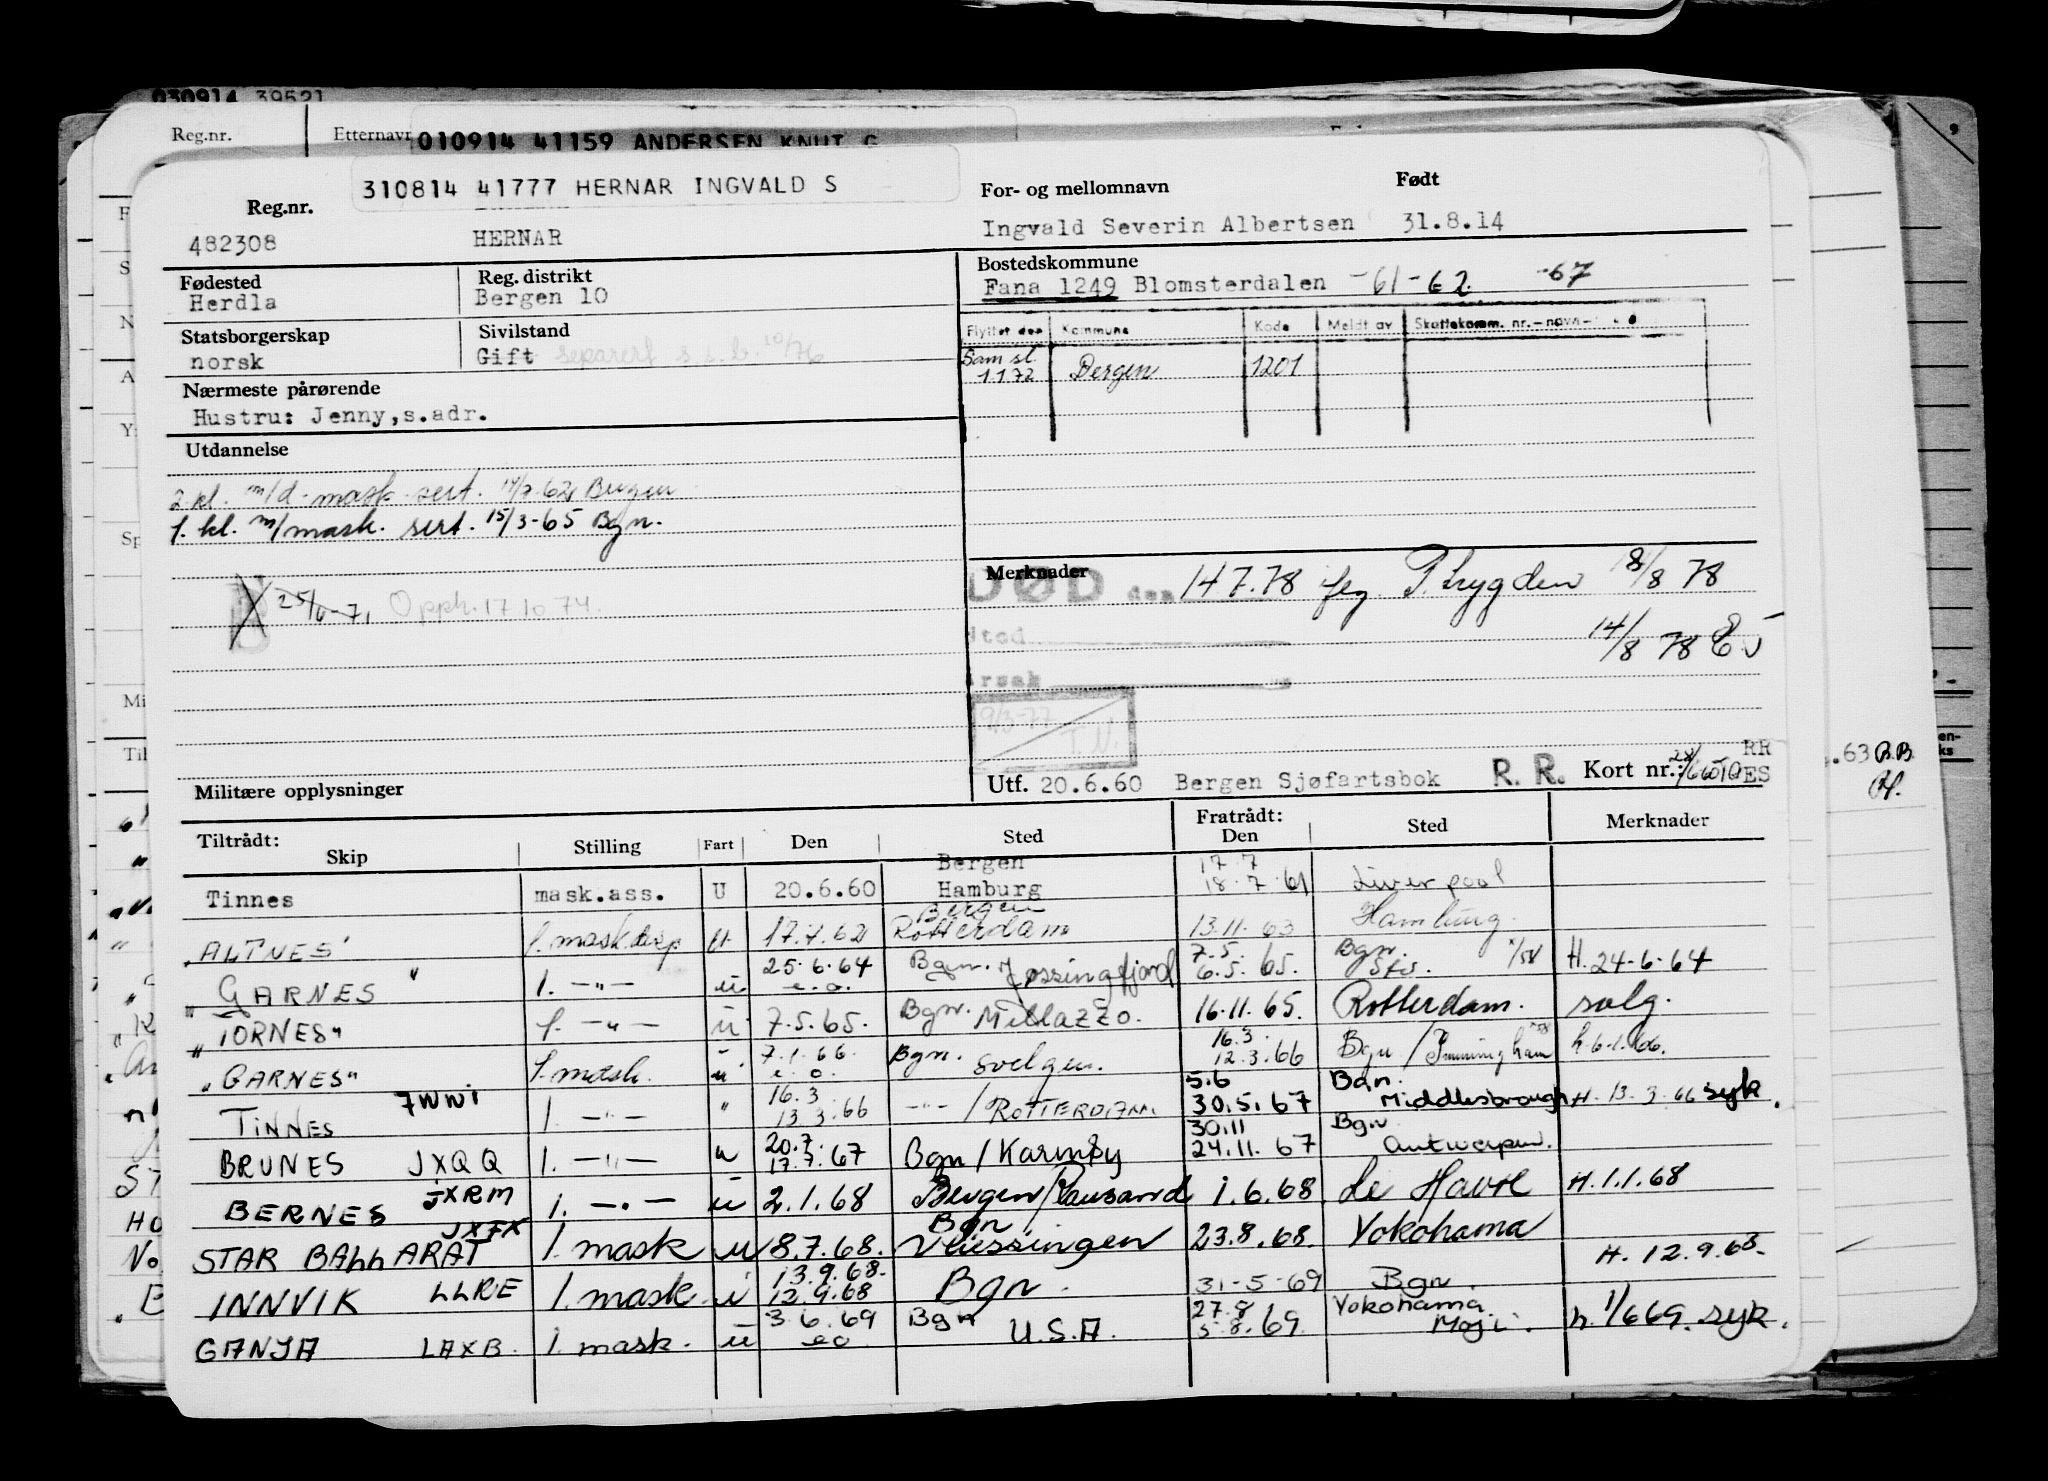 030914 39521
Reg.nr. Etternavn 010914 41159 ANDERSEN KNUT G
310814 41777 HERNAR INGVALD S
Reg.nr. For- og mellomnavn Født
482308 HERNAR Ingvald Severin Albertsen 31.8.14
Fødested Reg. distrikt Bostedskommune
Herdla Bergen 10 Fana 1249 Blomsterdalen -61-62 -67
Statsborgerskap Sivilstand Flyttet den Kommune Kode Meldt av Skattekomm. nr.-navn-
norsk Gift separert s.s.b. 10/76 Sam st. 1172 Bergen 1201
Nærmeste pårørende
Hustru: Jenny,s.adr.
Utdannelse
2.kl. m/d-mask-sert. 62 Bergen
1. kl. m/mask. sert. 15/3-65 Bgn.
Merknader
DØD den 14.7.78 flg. T.trygden 18/8 78
25/6-71 Opph. 17.10.74.
Sted 14/8 78
Årsak
9/3-77 T.N.
Militære opplysninger Utf. 20.6.60 Bergen Sjøfartsbok R. R. Kort nr.: RR
ES
.63 B.B.
Tiltrådt: Skip Stilling Fart Den Sted Fratrådt: Den Sted Merknader
Tinnes mask.ass. U 20.6.60 Bergen Hamburg 17.7 18.7.61 Liverpool
"ALTNES" 17.7.62 Bergen Rotterdam 13.11.63 Hamburg.
"GARNES" 1. -"- u 25.6.64 e.o. Bgn. Jøssingfjord 7.5. 6.5.65. Bgn. H. 24-6-64
"TORNES" 1. -"- u 7.5.65. Bgn. Milazzo. 16.11.65. Rotterdam. solg.
"GARNES" 1. mask. u 7.1.66. e.o. Bgn. Svelgen. 16.3. 12.3.66 Bgn / Immingham h. 6.1.66.
TINNES 1. -"- " 16.3. 13.3.66 -"- / ROTTERDAM. 5.6 30.5.67 Bgn. Middlesbrough H. 13.3.66 syk.
BRUNES JXQQ 1. -"- u 20.7. 17.7.67 Bgn / Karmøy 30.11 24.11.67 Bgn Antwerpen.
BERNES JXRM 1. -"- u 2.1.68 Bergen/Rausand 1.6.68 Le Havre H. 1.1.68
STAR BALLARAT JXFX 1. mask u 8.7.68. Bgn Vliessingen 23.8.68. Yokohama
INNVIK LLRE 1. mask. u 13.9.68. 12.9.68 Bgn. 31-5-69 Bgn. H. 12.9.68.
GANJA LAXB. 1. mask. u 3.6.69 eo Bgn U.S.A. 27.8 5.8.69 Yokohama. Moji. h. 1/6 69. syk.